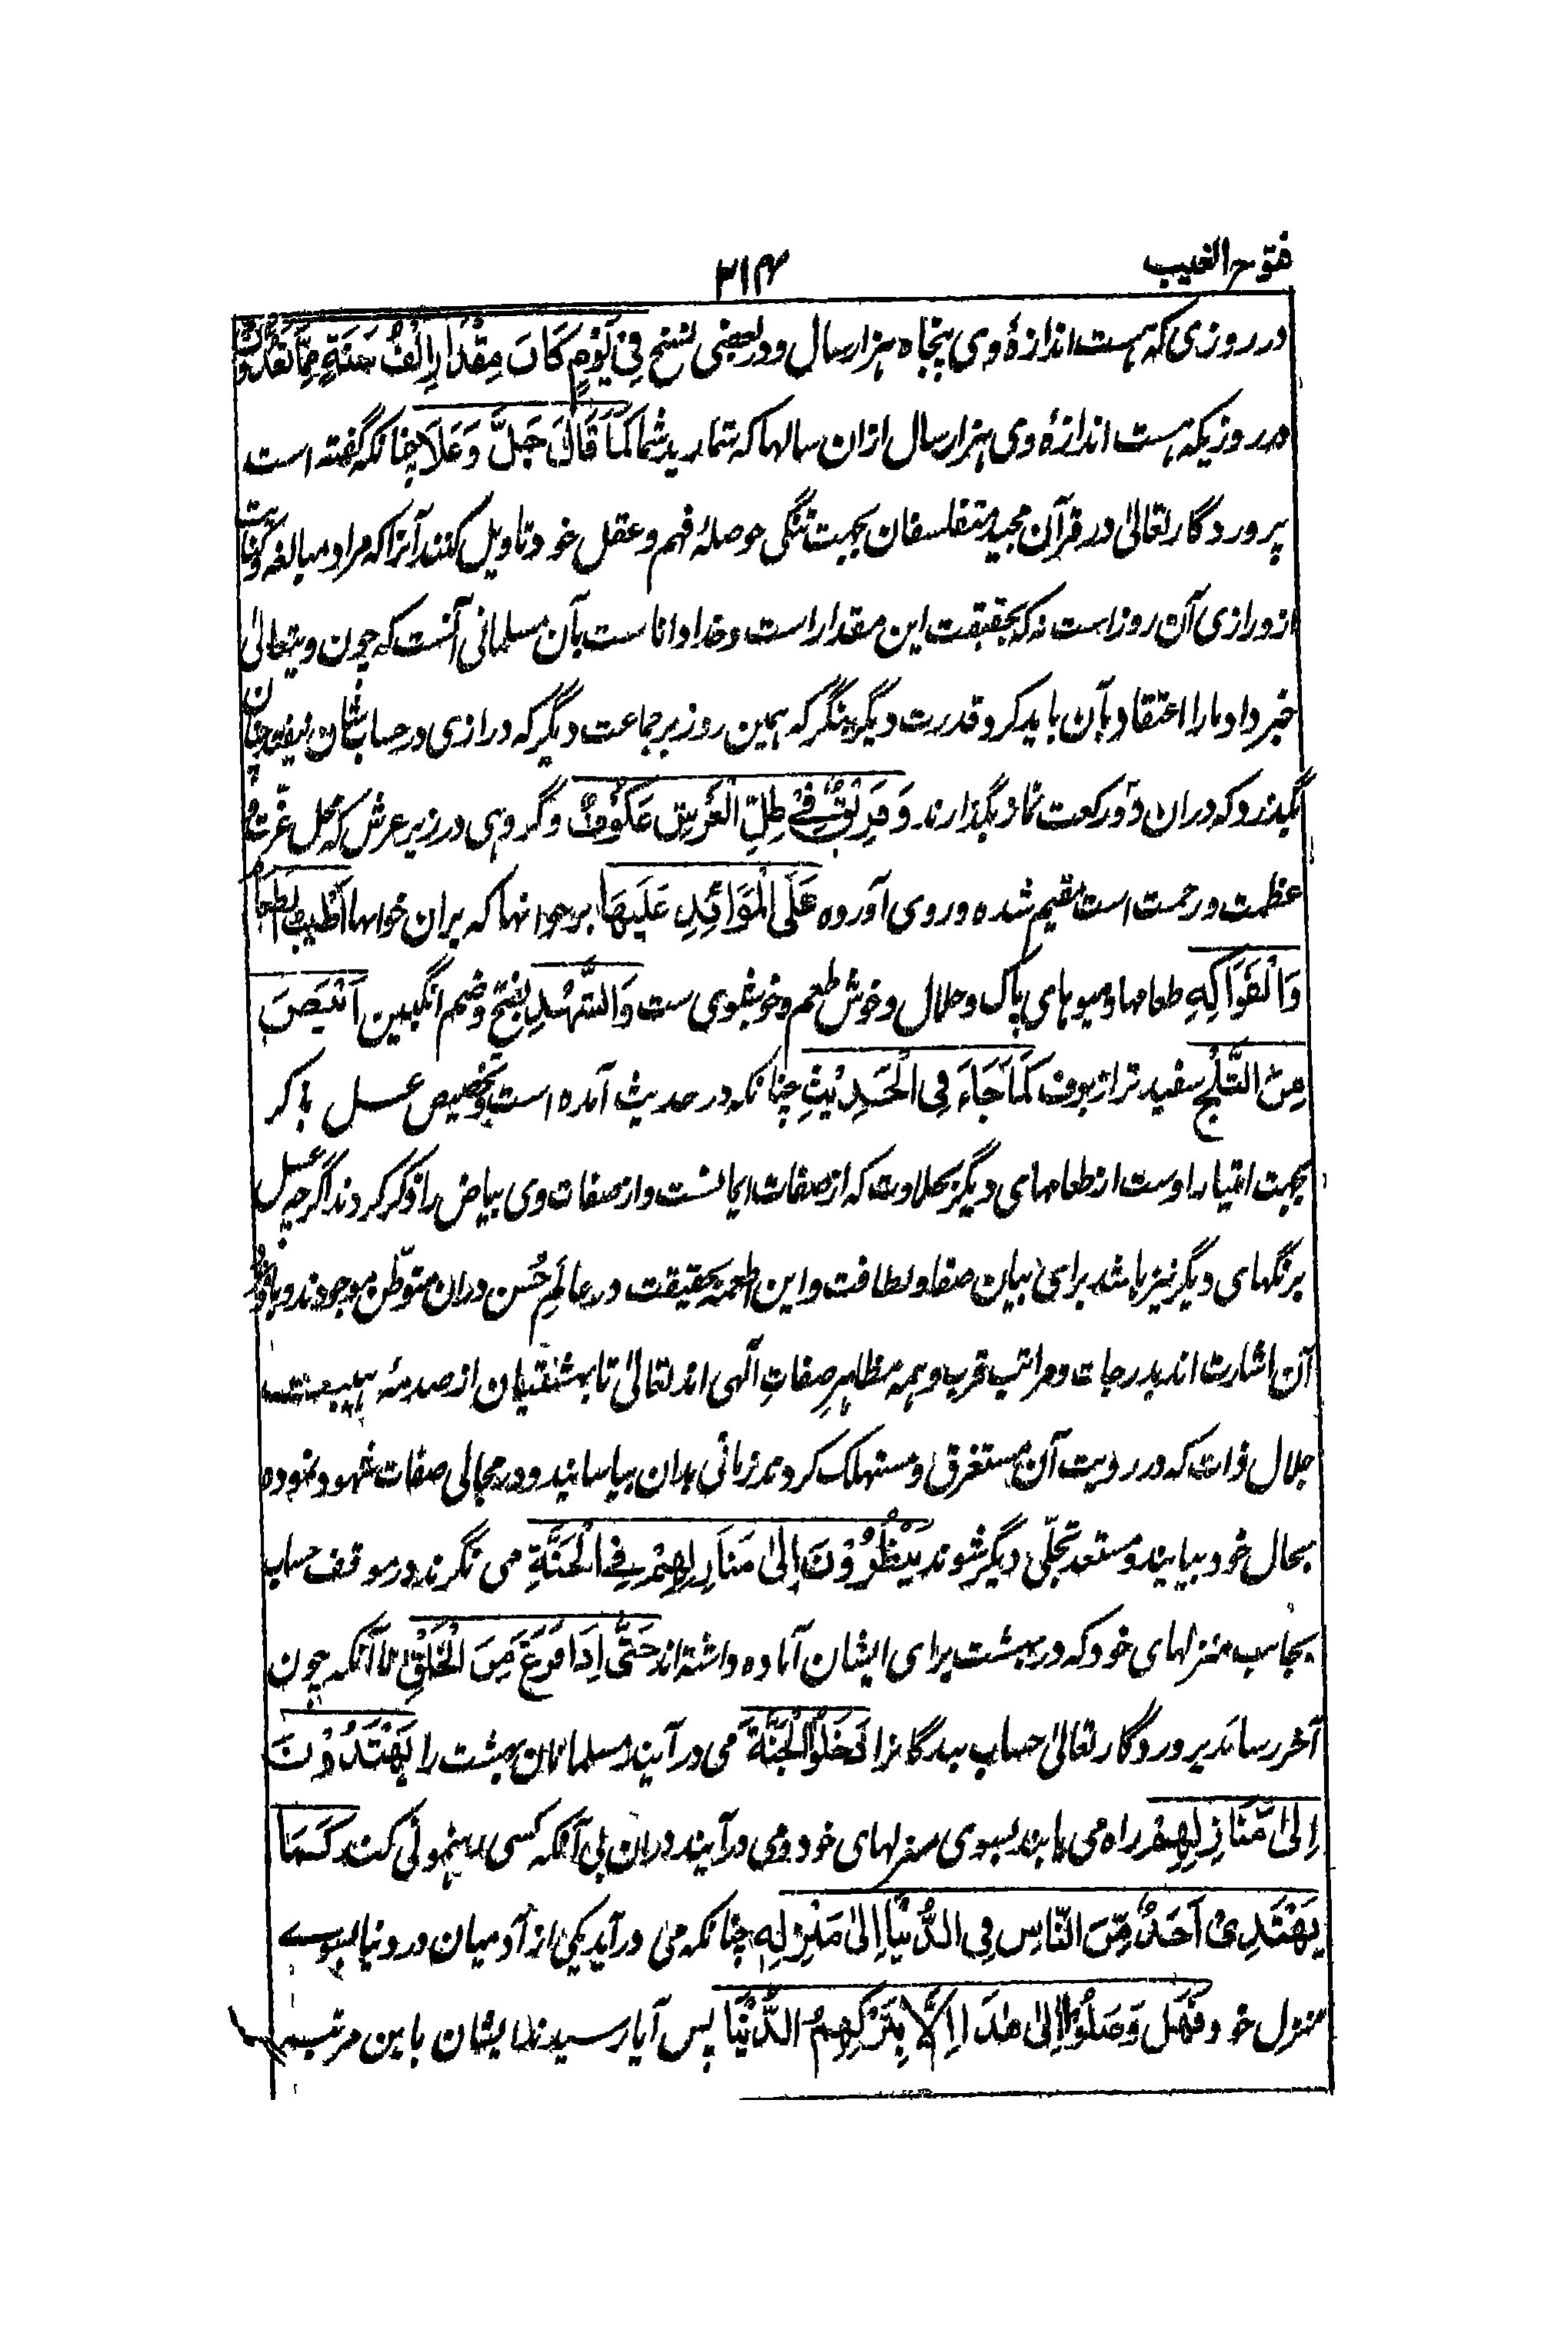 فتوح الغیب
۲۱۴
در روزی که هست اندازهٔ وی پنجاه هزار سال و در بعضی نسخ فِیْ یَوْمٍ کَانَ مِقْدَارُ اَلْفَ سَنَةٍ مِّمَّا تَعُدُّوْنَ
در روزیکه هست اندازهٔ وی هزار سال ازان سالها که شمارید شما کَمَا قَالَ جَلَّ وَعَلَا چنانکه گفته است
پروردگار تعالیٰ در قرآن مجید متفلسفان بجهت تنگی حوصلهٔ فهم و عقل خود تاویل کنند آنرا که مراد مبالغه و کنایت
از درازی آن روز است نه که بحقیقت این مقدار است و خدا داناست بآن مسلمانی آنست که چون ویتعالیٰ
خبر داد ما را اعتقاد بآن باید کرد و قدرت دیگر بنگر که همین روز بر جماعت دیگر که درازی در حساب شان نیفتد چنان
بگذرد که دران دو رکعت نماز بگذارند وَفِرْقَةٌ فِیْ ظِلِّ الْعَرْشِ عَکُوْفٌ و گروهی در زیر عرش که محل عزت و
عظمت و رحمت است مقیم شده و روی آورده عَلَی الْمَوَائِدِ عَلَیْهَا بر خوانها که بران خوانها اَطْیَبُ الطَّعَامِ
وَالْفَوَاکِهِ طعامها و میوهای پاک و حلال و خوش طعم و خوشبوی ست وَالشَّهْدِ بفتح و ضم انگبین اَبْیَضَ
مِنَ الثَّلْجِ سفید تر از برف کَمَا جَاءَ فِی الْحَدِیْثِ چنانکه در حدیث آمده است و تخصیص عسل بذکر
بجهت امتیاز اوست از طعامهای دیگر بحلاوت که از صفات ایمانست و از صفات وی بیاض را ذکر کردند اگرچه عسل
برنگهای دیگر نیز باشد برای بیان صفا و لطافت و این اطعمه بحقیقت در عالم حُسن دران متوطّن موجودند و
آن اشارت اند بدرجات و مراتب قرب و همه مظاهرِ صفاتِ الٰهی اند تعالیٰ تا بهشتیان از صدمهٔ هیبت
جلال ذات که در رویت آن مستغرق و مستهلک کردند زمانی بدان بیاسایند و در مجالی صفات شهود نموده
بحال خود بیایند و مستعد تجلّی دیگر شوند یَنْظُرُوْنَ اِلیٰ مَنَازِلِهِمْ فِی الْجَنَّةِ می نگرند در موقف حساب
بجانب منزلهای خود که در بهشت برای ایشان آماده داشته اند حَتَّی اِذَا فَرَغَ مِنَ الْخَلْقِ تا آنکه چون
آخر رساند پروردگار تعالیٰ حساب بندگانرا دَخَلُوا الْجَنَّةَ می در آیند مسلمانان بهشت را یَهْتَدُوْنَ
اِلیٰ مَنَازِلِهِمْ راه می یابند بسوی منزلهای خود و می در آیند دران بی آنکه کسی رهنمونی کند کَمَا
یَهْتَدِیْ اَحَدٌ مِّنَ النَّاسِ فِی الدُّنْیَا اِلیٰ مَنْزِلِهٖ چنانکه می در آید یکی از آدمیان در دنیا بسوے
منزل خود فَهَلْ وَصَلُوْا اِلیٰ هٰذَا اِلَّا بِتَرْکِهِمُ الدُّنْیَا پس آیا رسیدند ایشان باین مرتبه